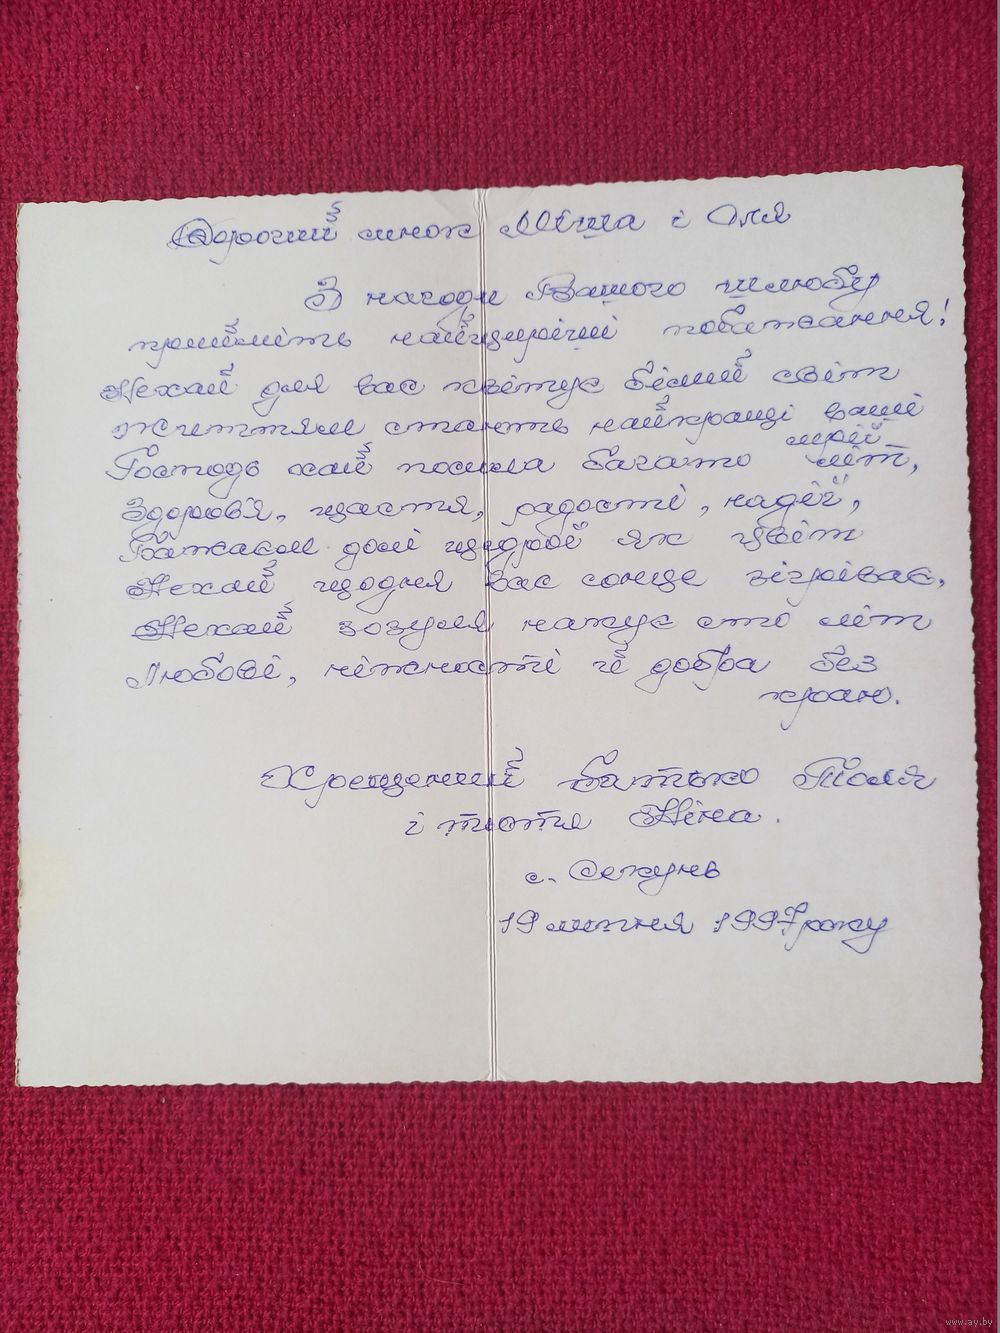 Дорогий синок Міша і Оля
З нагоди Вашого шлюбу
прийміть найщиріші побажання!
Нехай для вас квітує білий світ
Життям стають найкращі ваші
мрії
Господь хай посила багато літ,
Здоров'я, щастя, радості, надії,
Бажаєм долі щедрої як цвіт
Нехай щодня вас сонце зігріває,
Нехай зозуля накує сто літ
Любові, ніжності й добра без
краю.
Хрещений батько Толя
і тьотя Ніна.
с. Секунь
19 липня 1997 року
www.ay.by